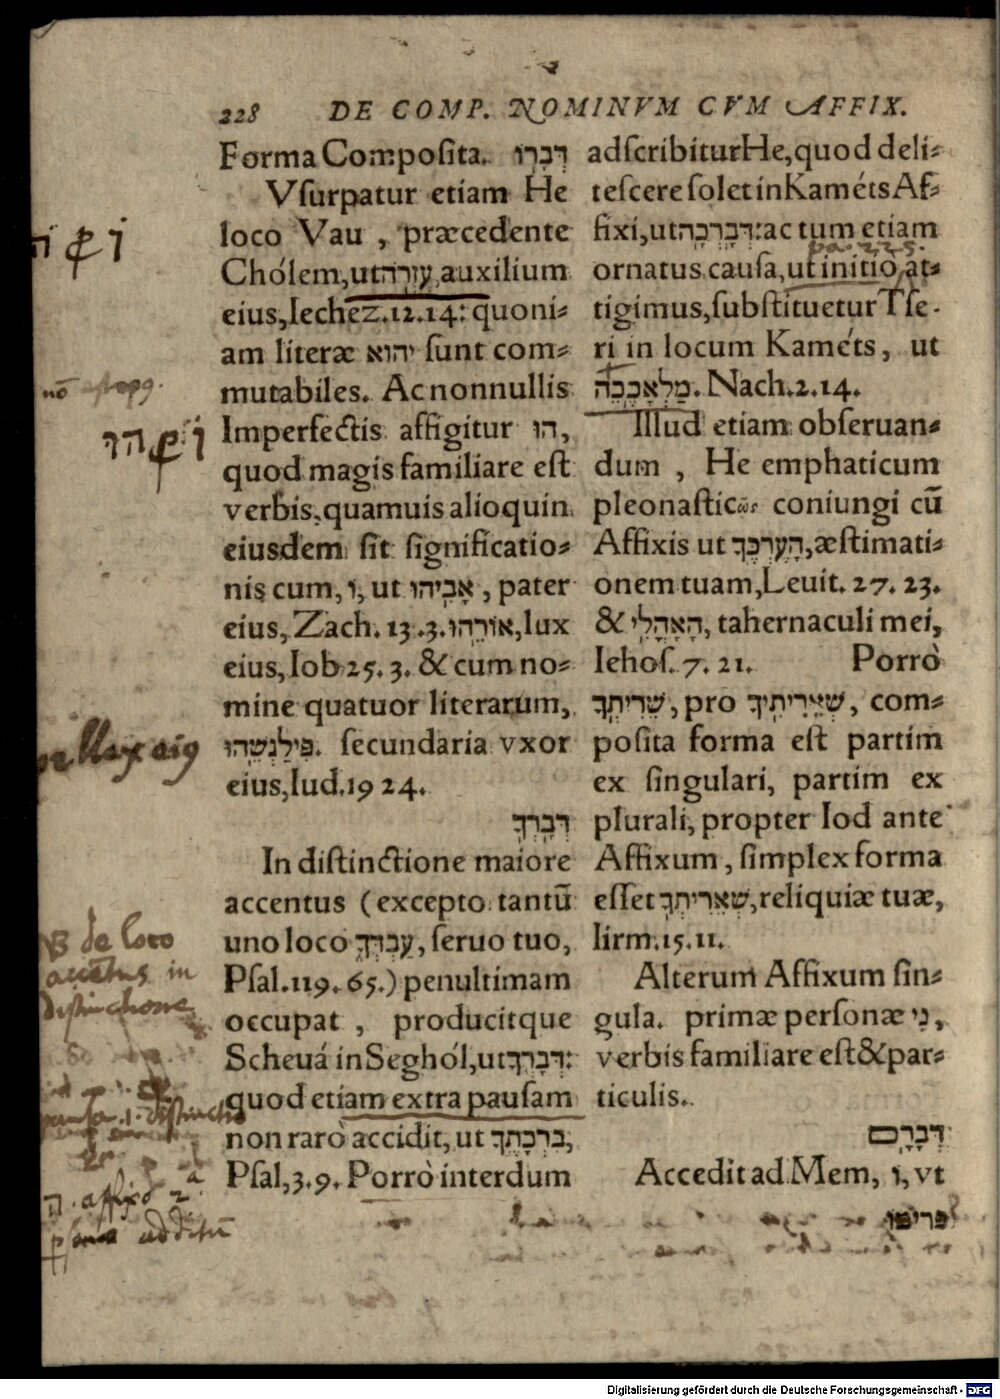 228 DE COMP. NOMINVM CVM AFFIX.
Forma Composita. דְּבָרוֹ
Vſurpatur etiam He
loco Vau , præcedente
Chólem,ut עֶזְרֹה, auxilium
eius,Iechez.12.14: quoni-
am literæ יהוא ſunt com-
mutabiles. Ac nonnullis
Imperfectis affigitur הוּ,
quod magis familiare eſt
verbis,quamuis alioquin
eiusdem ſit ſignificatio-
nis cum, וֹ, ut אָבִיהוּ, pater
eius, Zach. 13.3. אוֹרֵהוּ, lux
eius, Iob 25. 3. & cum no-
mine quatuor literarum,
פִּילַגְשֵׁהוּ. ſecundaria vxor
eius,Iud.19 24.
דְּבָרְךָ
In diſtinctione maiore
accentus (excepto tantũ
uno loco עַבְדְּךָ, ſeruo tuo,
Pſal.119. 65.) penultimam
occupat , producitque
Scheuá in Seghól,ut דְּבָרֶךָ:
quod etiam extra pauſam
non rarò accidit, ut בִּרְכָתֶךָ,
Pſal,3.9. Porrò interdum
adſcribitur He, quod deli-
teſcere ſolet in Kaméts Af-
fixi, ut דְּבָרְכָה: ac tum etiam
ornatus cauſa, ut initio at-
tigimus, ſubſtituetur Tſe-
ri in locum Kaméts, ut
מַלְאָכֵכֵה. Nach.2.14.
Illud etiam obſeruan-
dum , He emphaticum
pleonaſticῶς coniungi cũ
Affixis ut הָעֶרְכְּךָ, æſtimati-
onem tuam, Leuit. 27. 23.
& הָאָהֳלִי, tabernaculi mei,
Iehoſ. 7. 21. Porrò
שֵׁרִיתְךָ, pro שְׁאֵרִיתֶיךָ, com-
poſita forma eſt partim
ex ſingulari, partim ex
plurali, propter Iod ante
Affixum, ſimplex forma
eſſet שְׁאֵרִיתְךָ, reliquiæ tuæ,
Iirm.15.11.
Alterum Affixum ſin-
gula. primæ perſonæ נִי,
verbis familiare eſt & par-
ticulis.
דְּבָרָם
Accedit ad Mem, וֹ, vt
פרימו
pa. 225.
pellex eiꝰ
NB de loco
accētus in
diſtinctione
ה affixo 2ª
additū
Digitalisierung gefördert durch die Deutsche Forschungsgemeinschaft - DFG